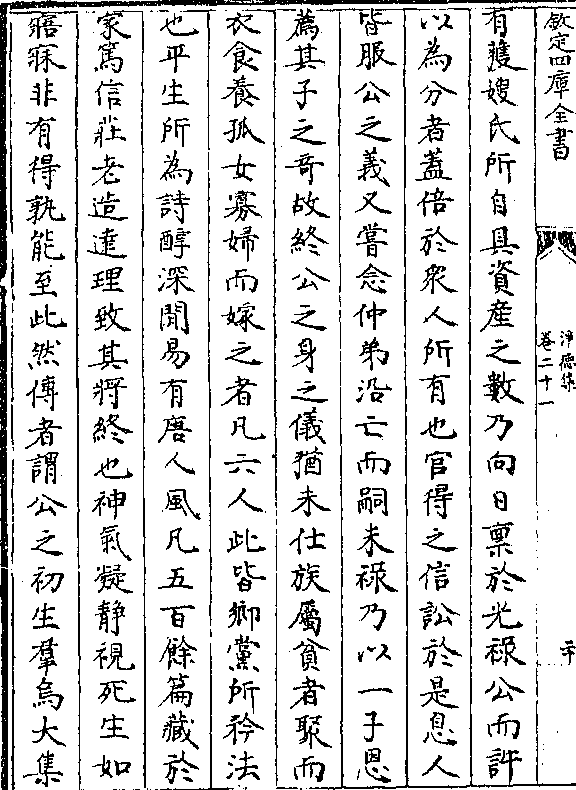 欽定四庫全書
淨德集
卷二十一
二十
有獲嫂氏所自具資産之數乃向日稟於光祿公而許
以為分者蓋倍於衆人所有也官得之信訟於是息人
皆服公之義又嘗念仲弟沿亡而嗣未祿乃以一子恩
薦其子之奇故終公之身之儀猶未仕族屬貧者聚而
衣食養孤女寡婦而嫁之者凡六人此皆鄉黨所矜法
也平生所為詩醇深閒易有唐人風凡五百餘篇藏於
家篤信莊老造達理致其將終也神氣凝靜視死生如
寤寐非有得孰能至此然傳者謂公之初生羣烏大集